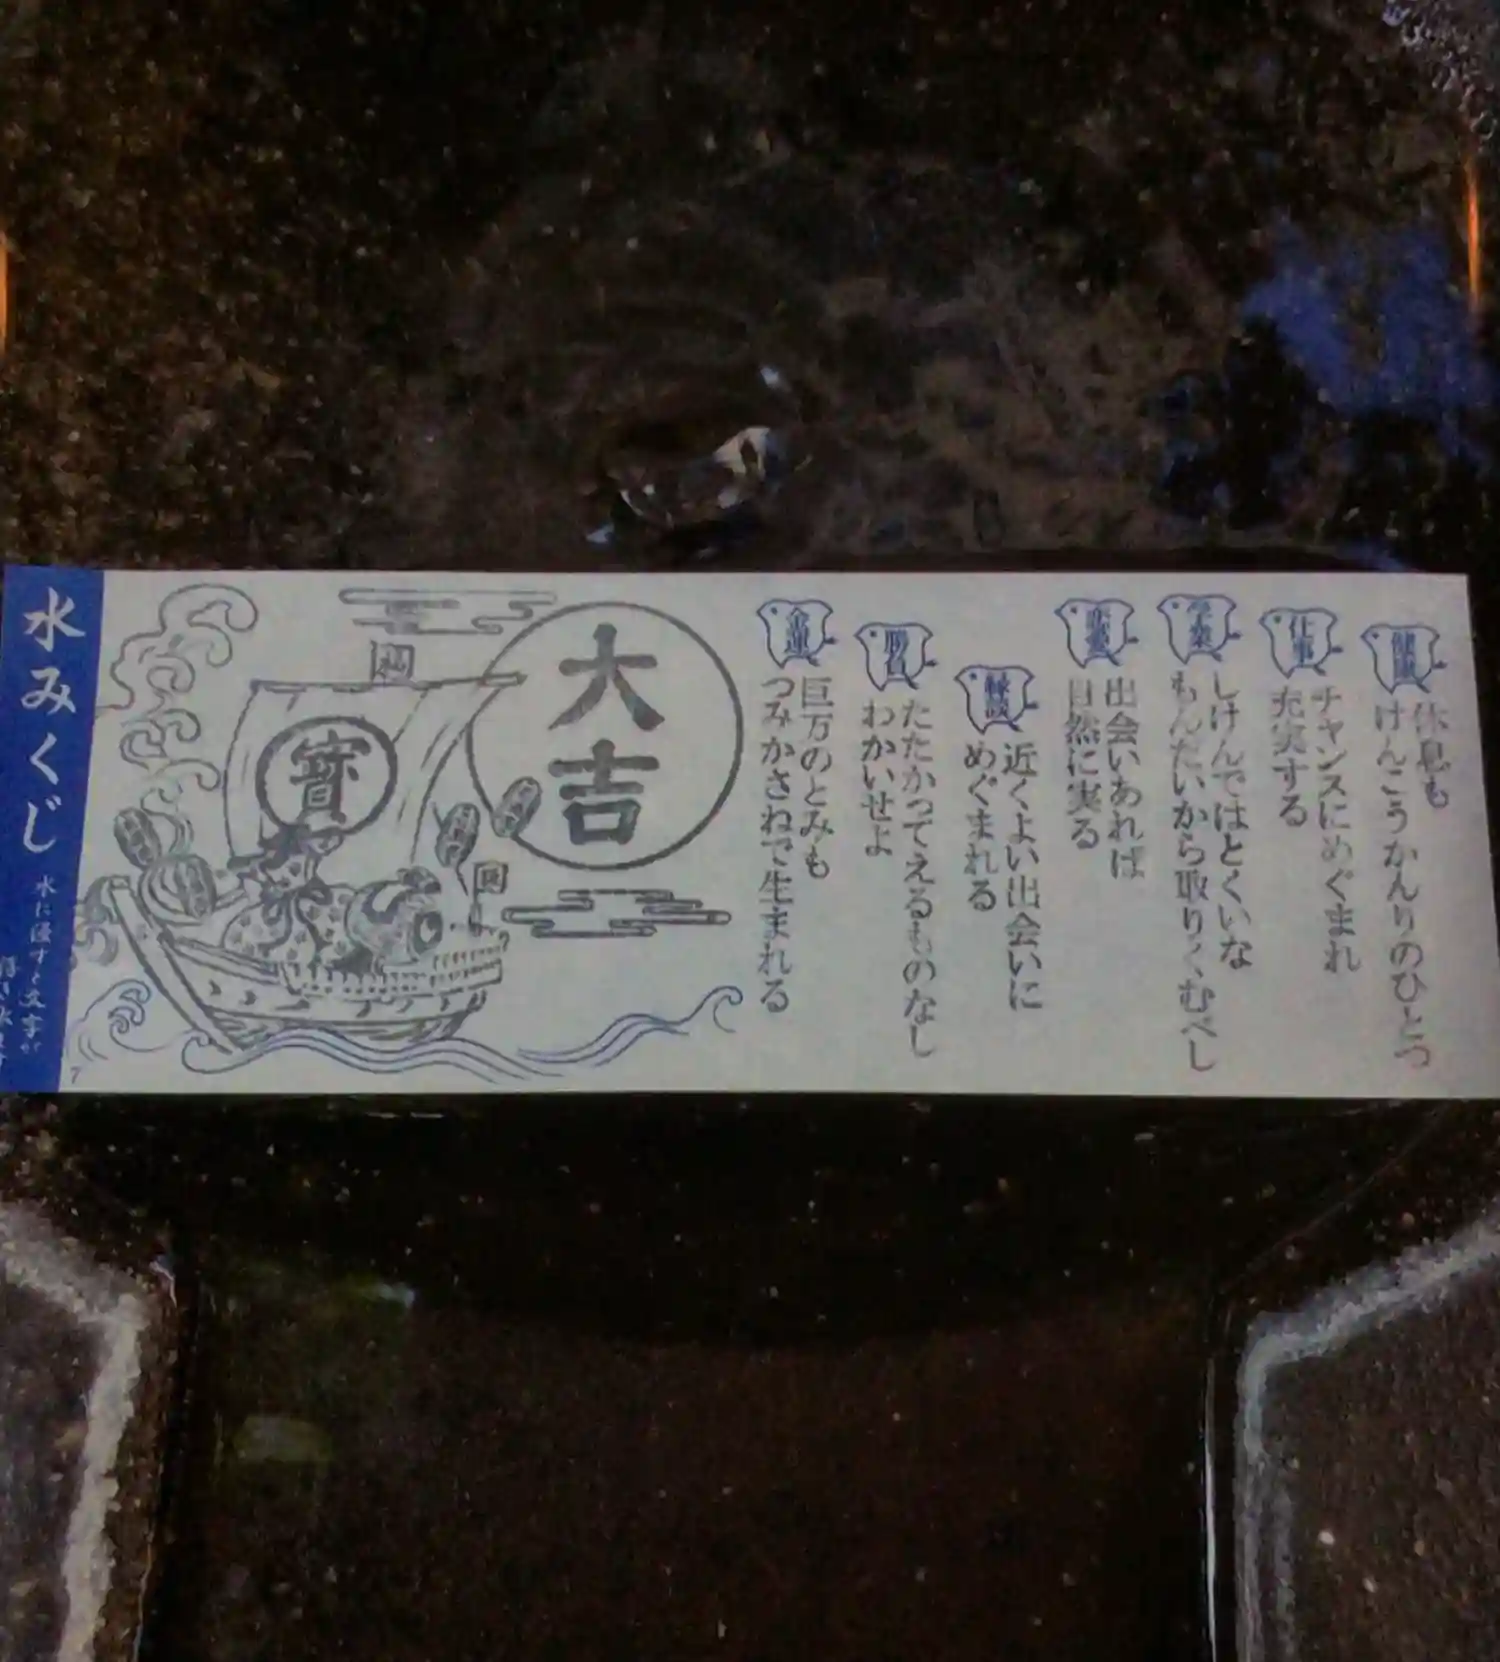 健康
休息も
けんこうかんりのひとつ
仕事
チャンスにめぐまれ
充実する
学業
しけんではとくいな
もんだいから取りくむべし
恋愛
出会いあれば
自然に実る
縁談
近くよい出会いに
めぐまれる
勝負
たたかってえるものなし
わかいせよ
金運
巨万のとみも
つみかさねで生まれる
大吉
寶
水みくじ
水に浸すと文字が
7